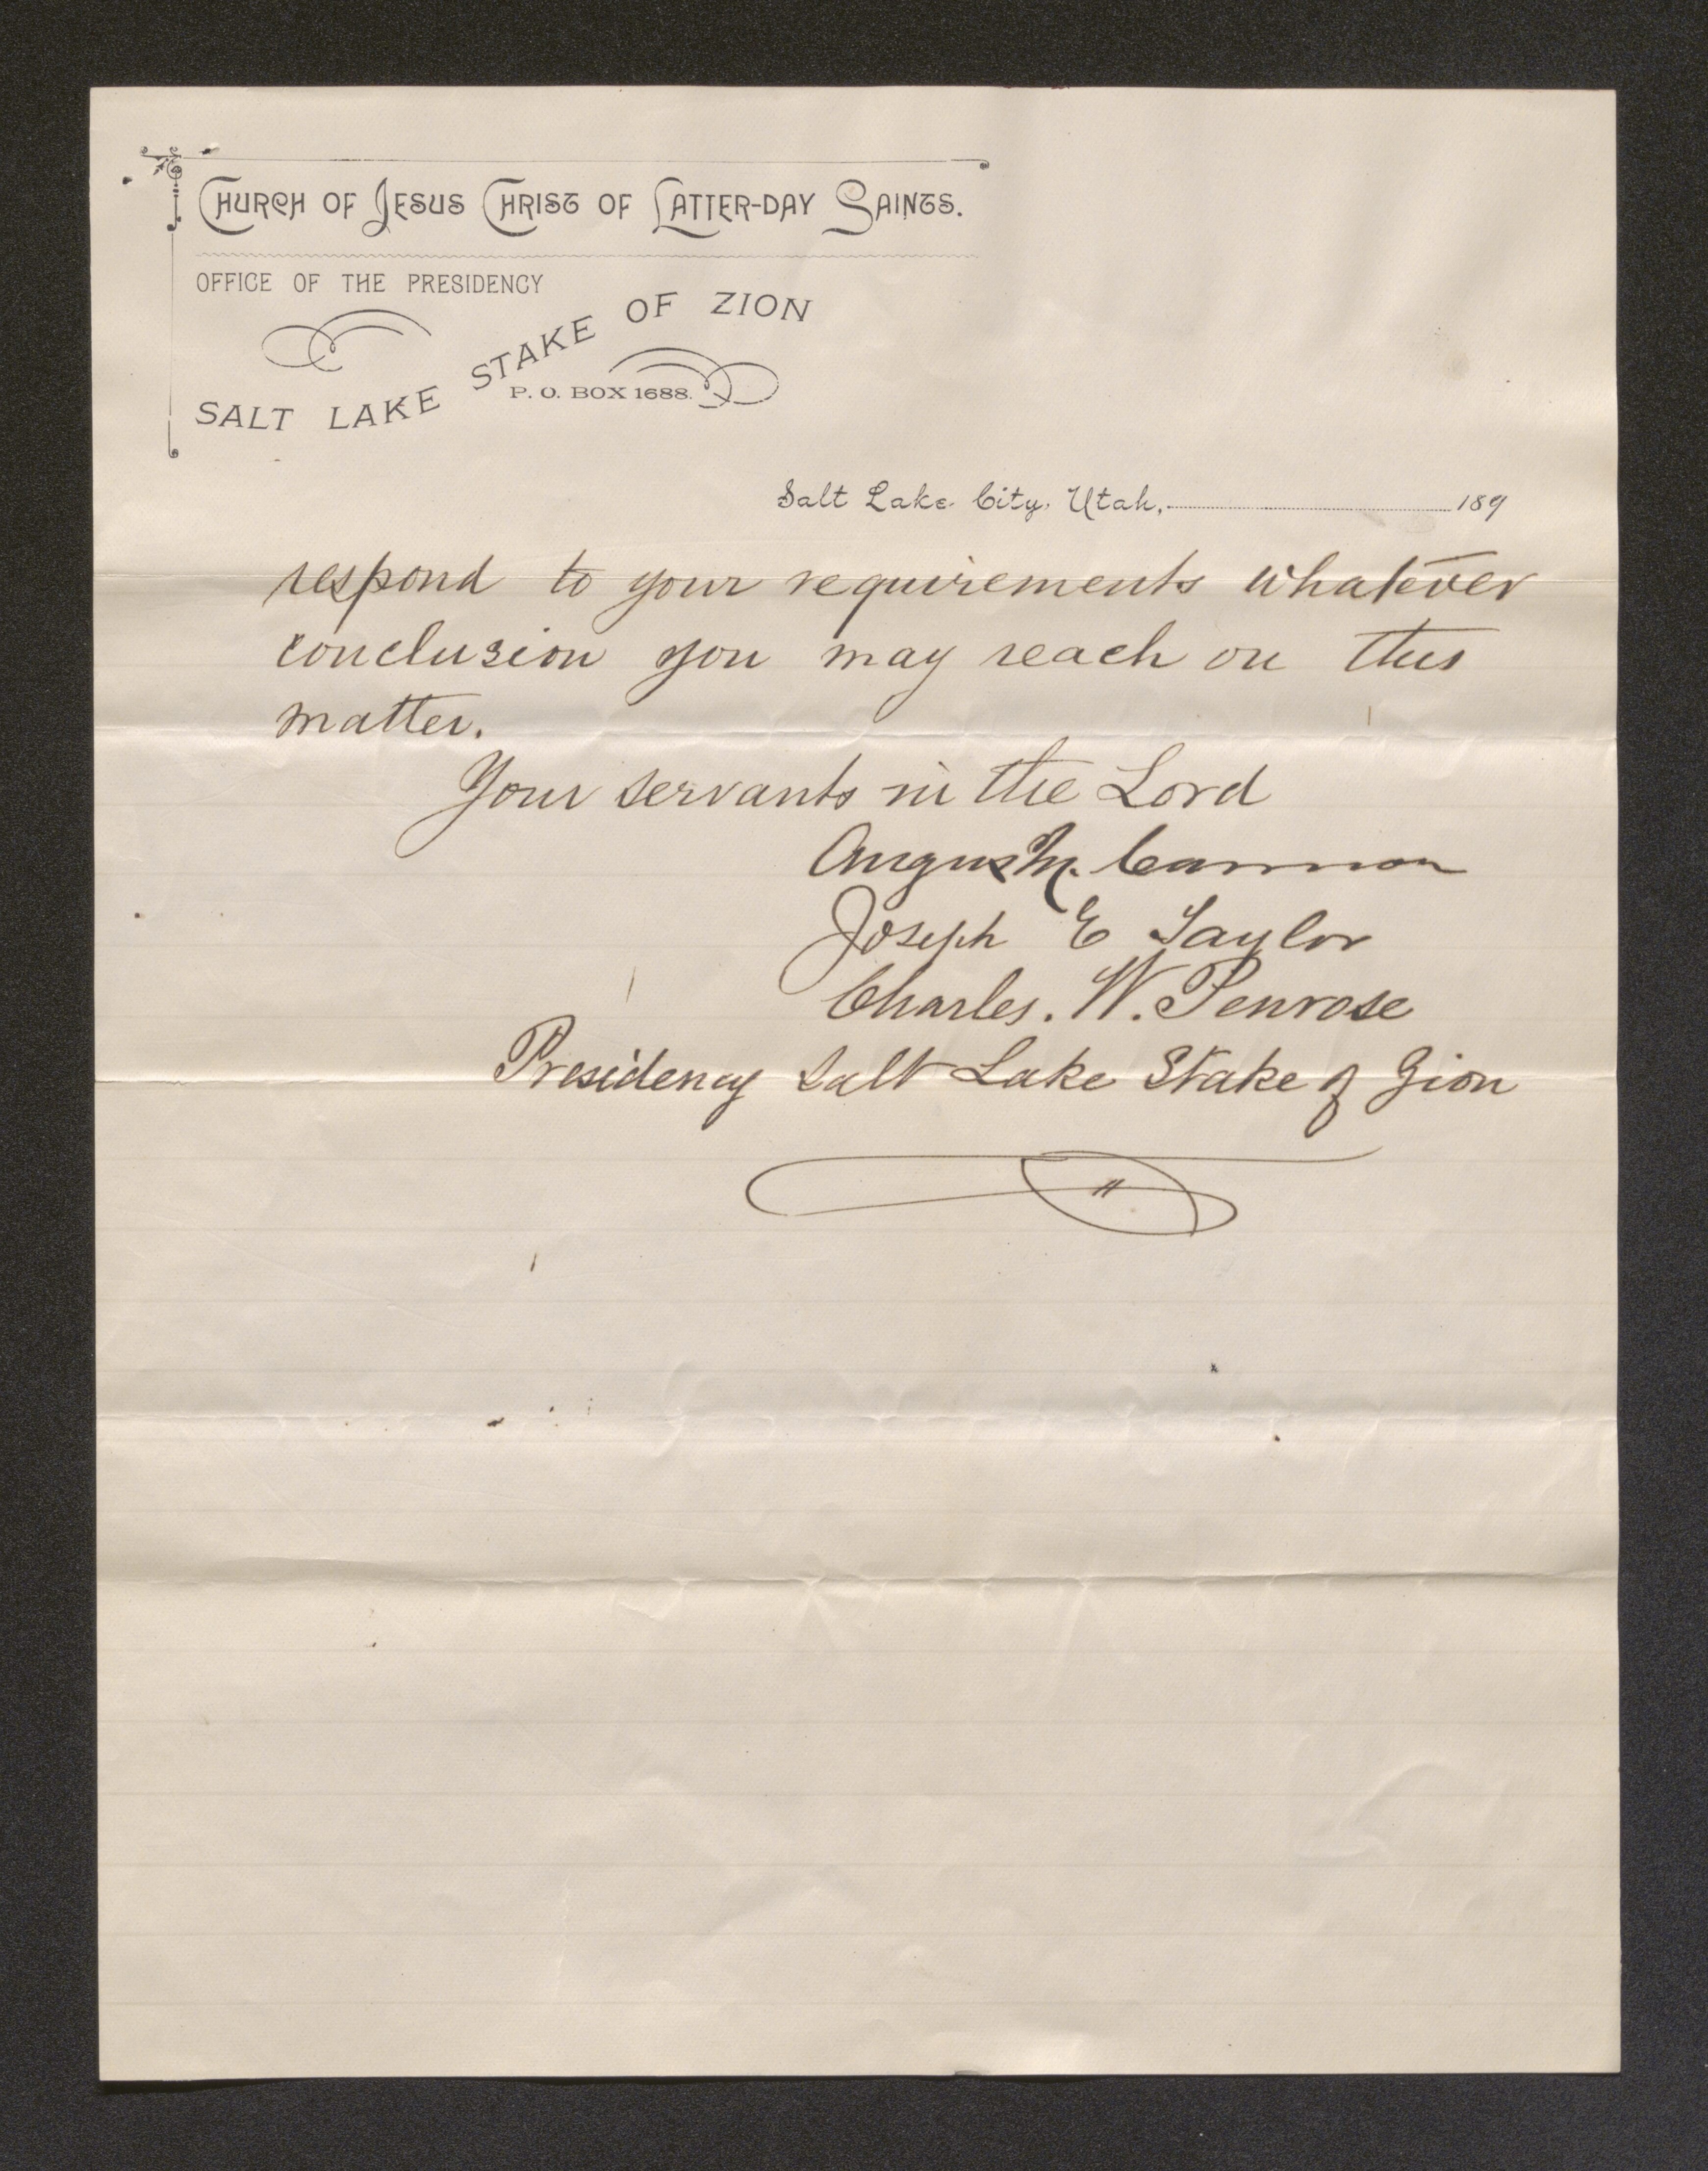 CHURCH OF JESUS CHRIST OF LATTER-DAY SAINTS.
OFFICE OF THE PRESIDENCY
SALT LAKE STAKE OF ZION
P. O. BOX 1688.
Salt Lake City, Utah, 189
respond to your requirements whatever
conclusion you may reach on this
matter.
Your servants in the Lord
Angus M. Cannon
Joseph E Taylor
Charles. W. Penrose
Presidency Salt Lake Stake of Zion